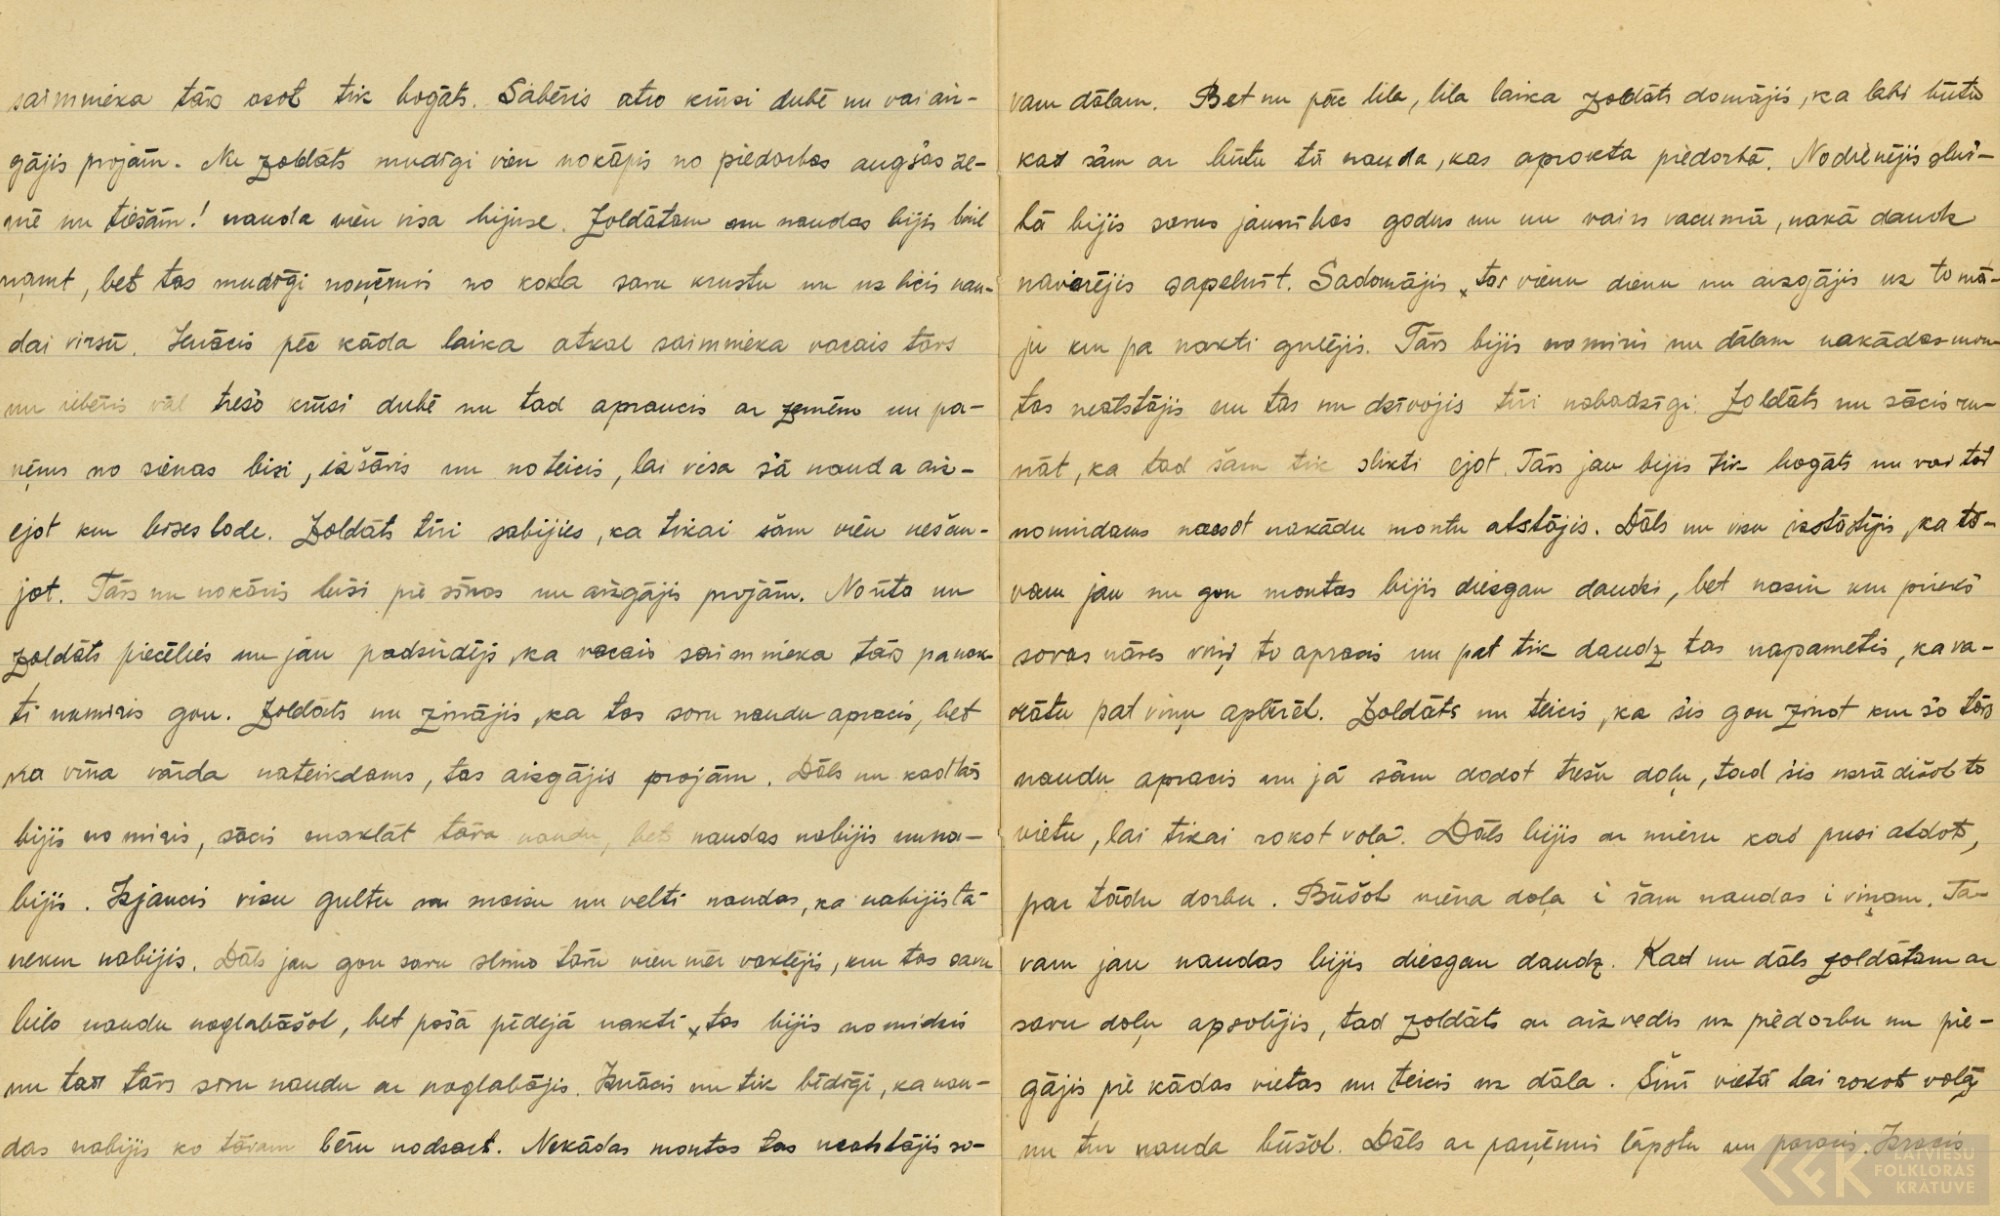 saimnieka tās asot tik bogāts. Sabēris atro krūsi dubē un vai aiz-
gājis projām. Nu zoldāts mudīgi vien nokāpis no piedarbas augšas ze-
mē un tiešām! nauda vien visa bijuse. Zoldātam nu naudas bijis bail
ņamt, bet tas mudīgi noņēmis no kokla savu krustu un uz licis nau-
dai virsū. Ienācis pēc kāda laika atkal saimnieka vacais tāvs
un iebēris vāl trešo krūsi dubē un tad apraucis ar zemēm un pa-
ņēmis no sienas bisi, izšāvis un noteicis, lai visa šā nauda aiz-
ejot kun bises lode. Zoldāts tīri sabijies, ka tikai šām vien nešau-
jot. Tāvs nu nokāris bisi pie sīnas un aizgājis projām. No rīta nu
zoldāts piecēlies un jau padzirdējs, ka vacais saimnieka tāvs pa nak-
ti nomiris gon. Zoldāts nu zinājis, ka tas savu naudu apracis, bet
na vina vārda nateikdams, tas aizgājis projām. Dāls nu kad tās
bijis nomiris, sācis maklāt tāva naudu, bet naudas nabijis un na-
bijis. Izjaucis visu gultu un maisu un velti naudas, ka nabijis tā
nekun nabijis. Dāls jau gon savu slimo tāvu vien mēr vaktējis, kun tas savu
lielo naudu noglabāšot, bet pašā pēdejā nakti, tas bijis nomidzis
un tad tāvs savu naudu ar noglabājis. Iznācis nu tik bēdīgi, ka nau-
das nabijis ko tāvam bēru nodzert. Nekādas mantas tas neatstājis sa-
vam dālam. Bet nu pēc lila, lila laika zoldāts domājis, ka labi būtu
kad šām ar būtu tā nauda, kas aprakta piedarbā. Nodienējis služ-
bā bijis savus jaunības godus un nu vairs vacumā, nakā dauds
navarējis sapelnīt. Sadomājis, tas vienu dienu nu aizgājis uz to mā-
ju kun pa nakti gulējis. Tāvs bijis nomiris un dālam nakādas man-
tas neatstājis un tas nu dzīvojis tīri nabadzīgi. Zoldāts nu sācis ru-
nāt, ka tad šam tik slikti ejot. Tāvs jau bijis tik bogāts un vai tad
nomirdams naesot nakādu mantu atstājis. Dāls nu visu izstāstījis, ka tā-
vam jau nu gon mantas bijis diezgan daudzi, bet nazin kun priekš
savas nāves viņš to apracis un pat tik daudz tas napametis, ka va-
rātu pat viņu apbērēt. Zoldāts nu teicis, ka šis gon zinot kun šo tāvs
naudu apracis un jā šām dodot trešu daļu, tad šis uzrādišot to
vietu, lai tikai rokot vaļā. Dāls bijis ar mieru kad pusi atdots,
par tādu darbu. Būšot viena daļa i šām naudas i viņam. Tā-
vam jau naudas bijis diezgan daudz. Kad nu dāls zoldātam ar
savu daļu apsolījis, tad zoldāts ar aizvedis uz piedarbu un pie-
gājis pie kādas vietas un teicis uz dāla. Šinī vietā lai rokot vaļā
un tur nauda būšot. Dāls ar paņēmis lāpstu un paracis. Izracis
LATVIEŠU
FOLKLORAS
KRĀTUVE